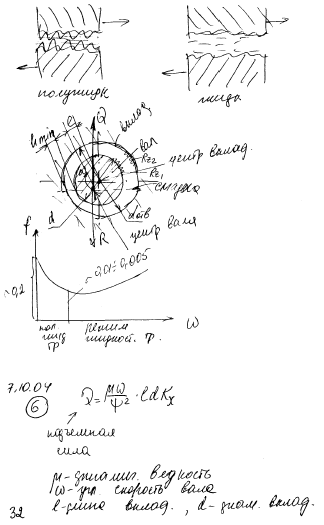 полужидк жидк
Q
hmin e вклад.
вал
Rz2 центр вклад.
Rz1
смазка
d dотв
R центр вала
f
~0,01÷0,005
~0,2
пол жид тр режим жидкост. тр. ω
7.10.04
6 Q = μω/ψ² · ldKx
подъемная
сила
μ-динамич. вязкость
ω-угл. скорость вала
l-длина вклад., d-диам. вклад.
32